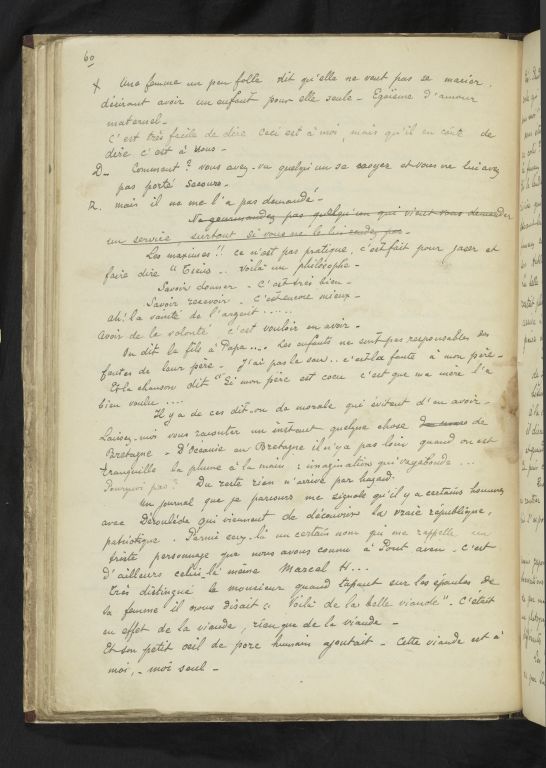 60
+ Une femme un peu folle dit qu'elle ne veut pas se marier,
désirant avoir un enfant pour elle seule - Egoïsme d'amour
maternel -
C'est très facile de dire ceci est à moi, mais qu'il en coûte de
dire c'est à vous -
D - Comment? vous avez vu quelqu'un se noyer et vous ne lui avez
pas porté secours -
R. mais il ne me l'a pas demandé -
Ne gourmandez pas quelqu'un qui vient vous demander
un service, surtout si vous ne le lui rendez pas -
Les maximes!! ce n'est pas pratique, c'est fait pour jaser et
faire dire "Tiens .. voilà un philosophe -
Savoir donner - C'est très bien -
Savoir recevoir - C'est encore mieux -
ah! la vanité de l'argent ......
Avoir de la volonté c'est vouloir en avoir -
On dit le fils à Papa .... Les enfants ne sont pas responsables des
fautes de leur père - J'ai pas le sou .. c'est la faute à mon père -
Et la chanson dit "Si mon père est cocu c'est que ma mère l'a
bien voulu ....
Il y a de ces dit-on de morale qui évitent d'en avoir -
Laissez-moi vous raconter un instant quelque chose de
Bretagne - D'Océanie en Bretagne il n'y a pas loin quand on est
tranquille la plume à la main : imagination qui vagabonde ...
Pourquoi pas? Du reste rien n'arrive par hazard.
Un journal que je parcours me signale qu'il y a certains hommes
avec Déroulède qui viennent de découvrir la vraie république,
patriotique. Parmi ceux-là un certain nom qui me rappelle un
triste personnage que nous avons connu à Pont aven - C'est
d'ailleurs celui-là même Marcel H ...
Très distingué le monsieur quand tapant sur les épaules de
sa femme il nous disait : "Voilà de la belle viande" - C'était
en effet de la viande, rien que de la viande -
Et son petit œil de porc humain ajoutait - Cette viande est à
moi, - moi seul -